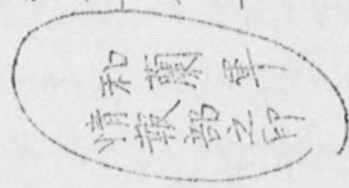 和蘭軍
情報部之印